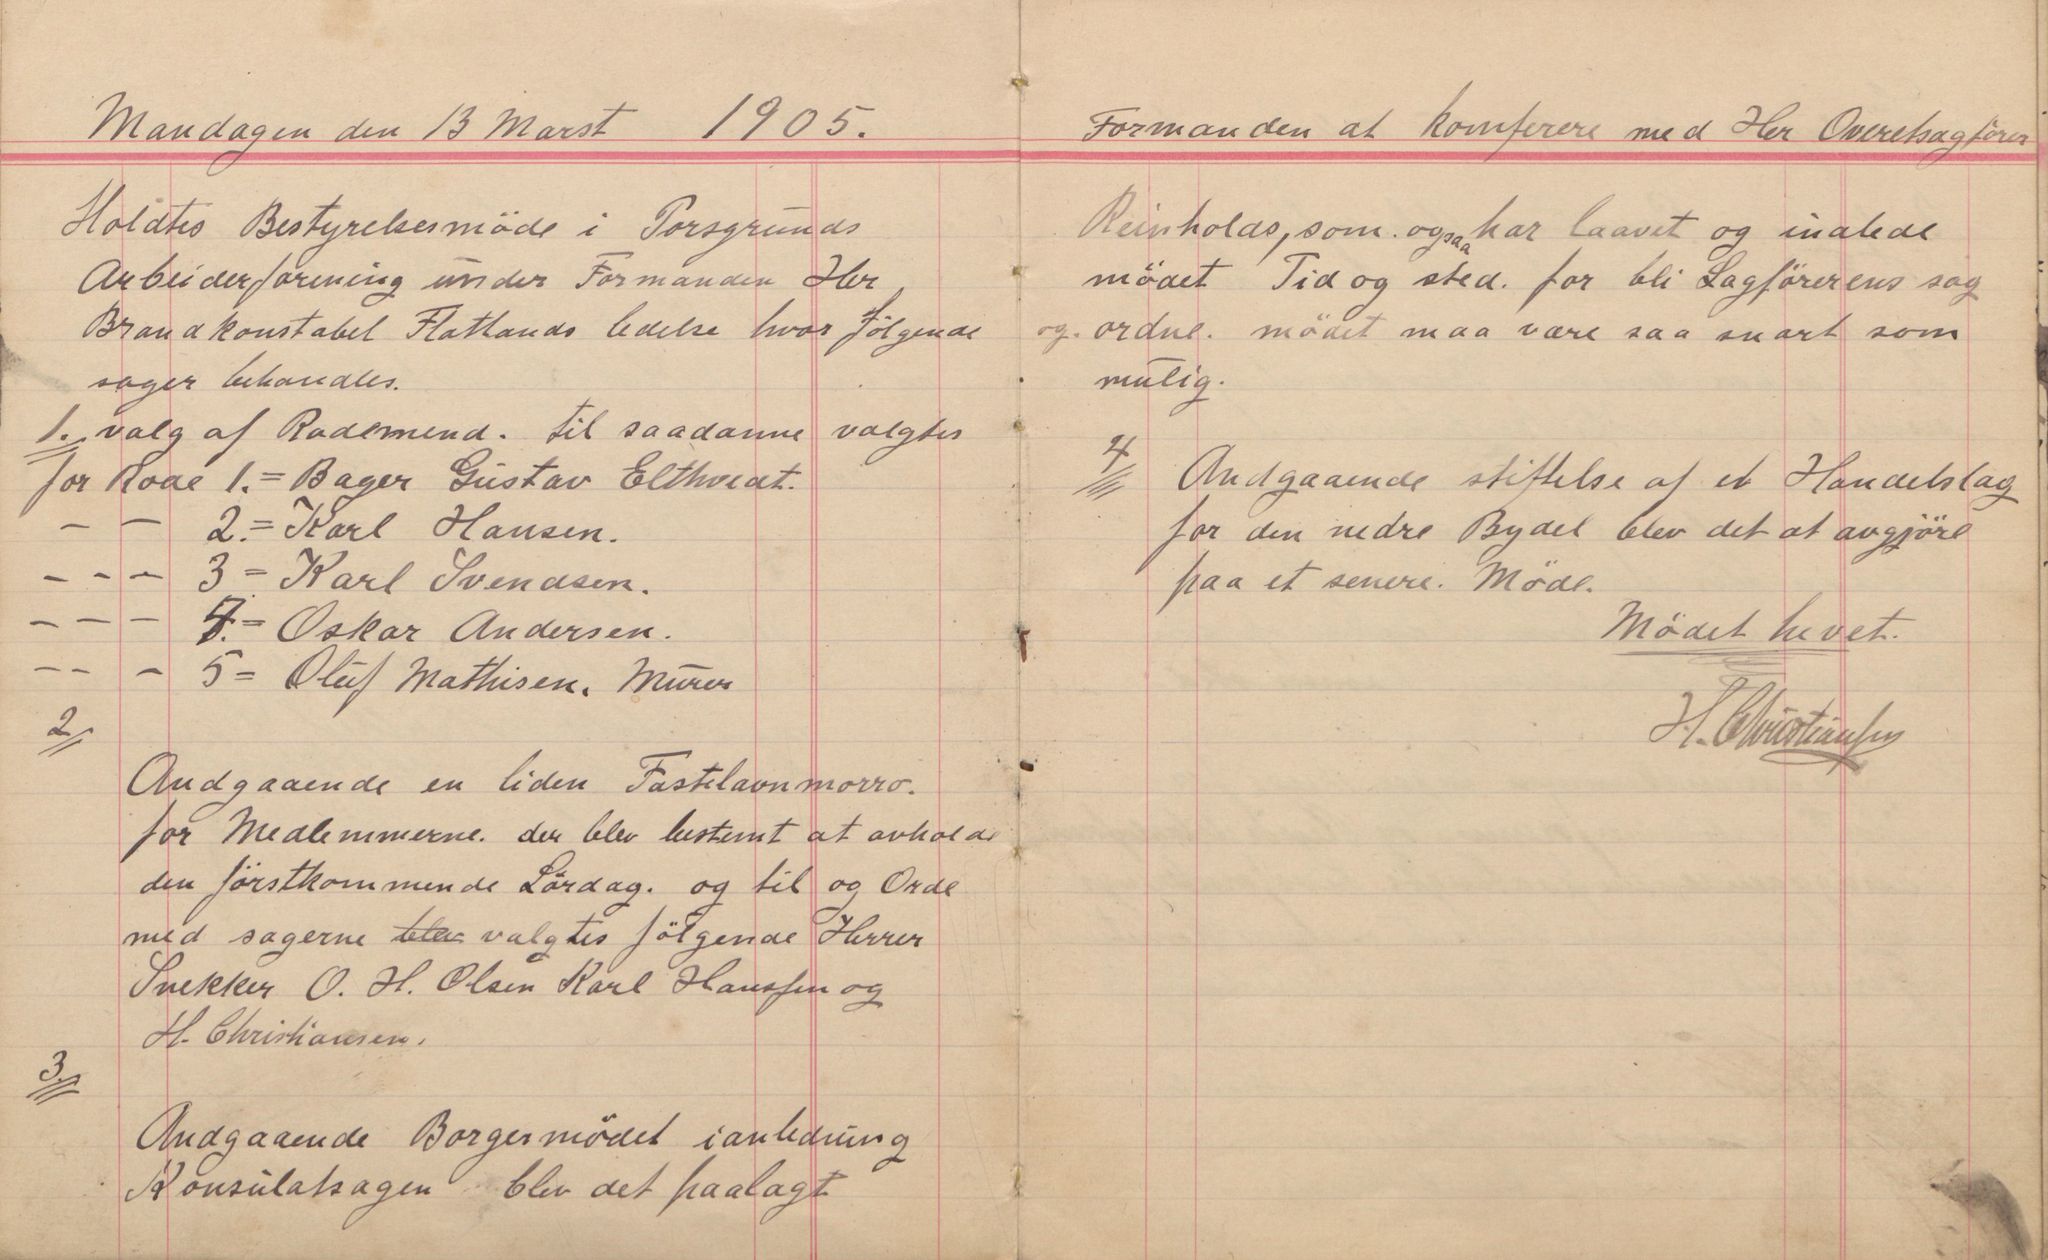 Mandagen den 13 Marst 1905.
Holdtes Bestyrelsesmöde i Porsgrunds
Arbeiderforening under Formanden Her
Brandkonstabel Flatlands ledelse hvor følgende
sager behandles.
1. valg af Rodemend. til saadanne valgtes
for Rode 1. = Bager Gustav Elthvedt.
— — 2. = Karl Hansen.
— — — 3 = Karl Svendsen.
— — — 4. = Oskar Andersen.
— — — 5 = Oluf Mathisen. Murer
2
Andgaaende en liden Fastelavnmorro.
for Medlemmerne. der blev bestemt at avholde
den förstkommende Lördag. og til og Orde
med sagerne blev valgtes fölgende Herrer
Snekker O. H. Olsen Karl Hanssen og
H. Christiansen.
3.
Andgaaende Borgermödet ianledning
Konsulatsagen blev det paalagt
Formanden at komferere med Her Overetsagförer
Reinholds, som. ogsaa har laavet og inalede
mödet Tid og sted. for bli Sagförerens sag
og. ordne. mödet maa være saa snart som
mulig.
4
Andgaaende stiftelse af et Handelslag
for den nedre Bydel blev det at avgjöre
paa et senere. Möde.
Mödet hevet.
H. Christiansen